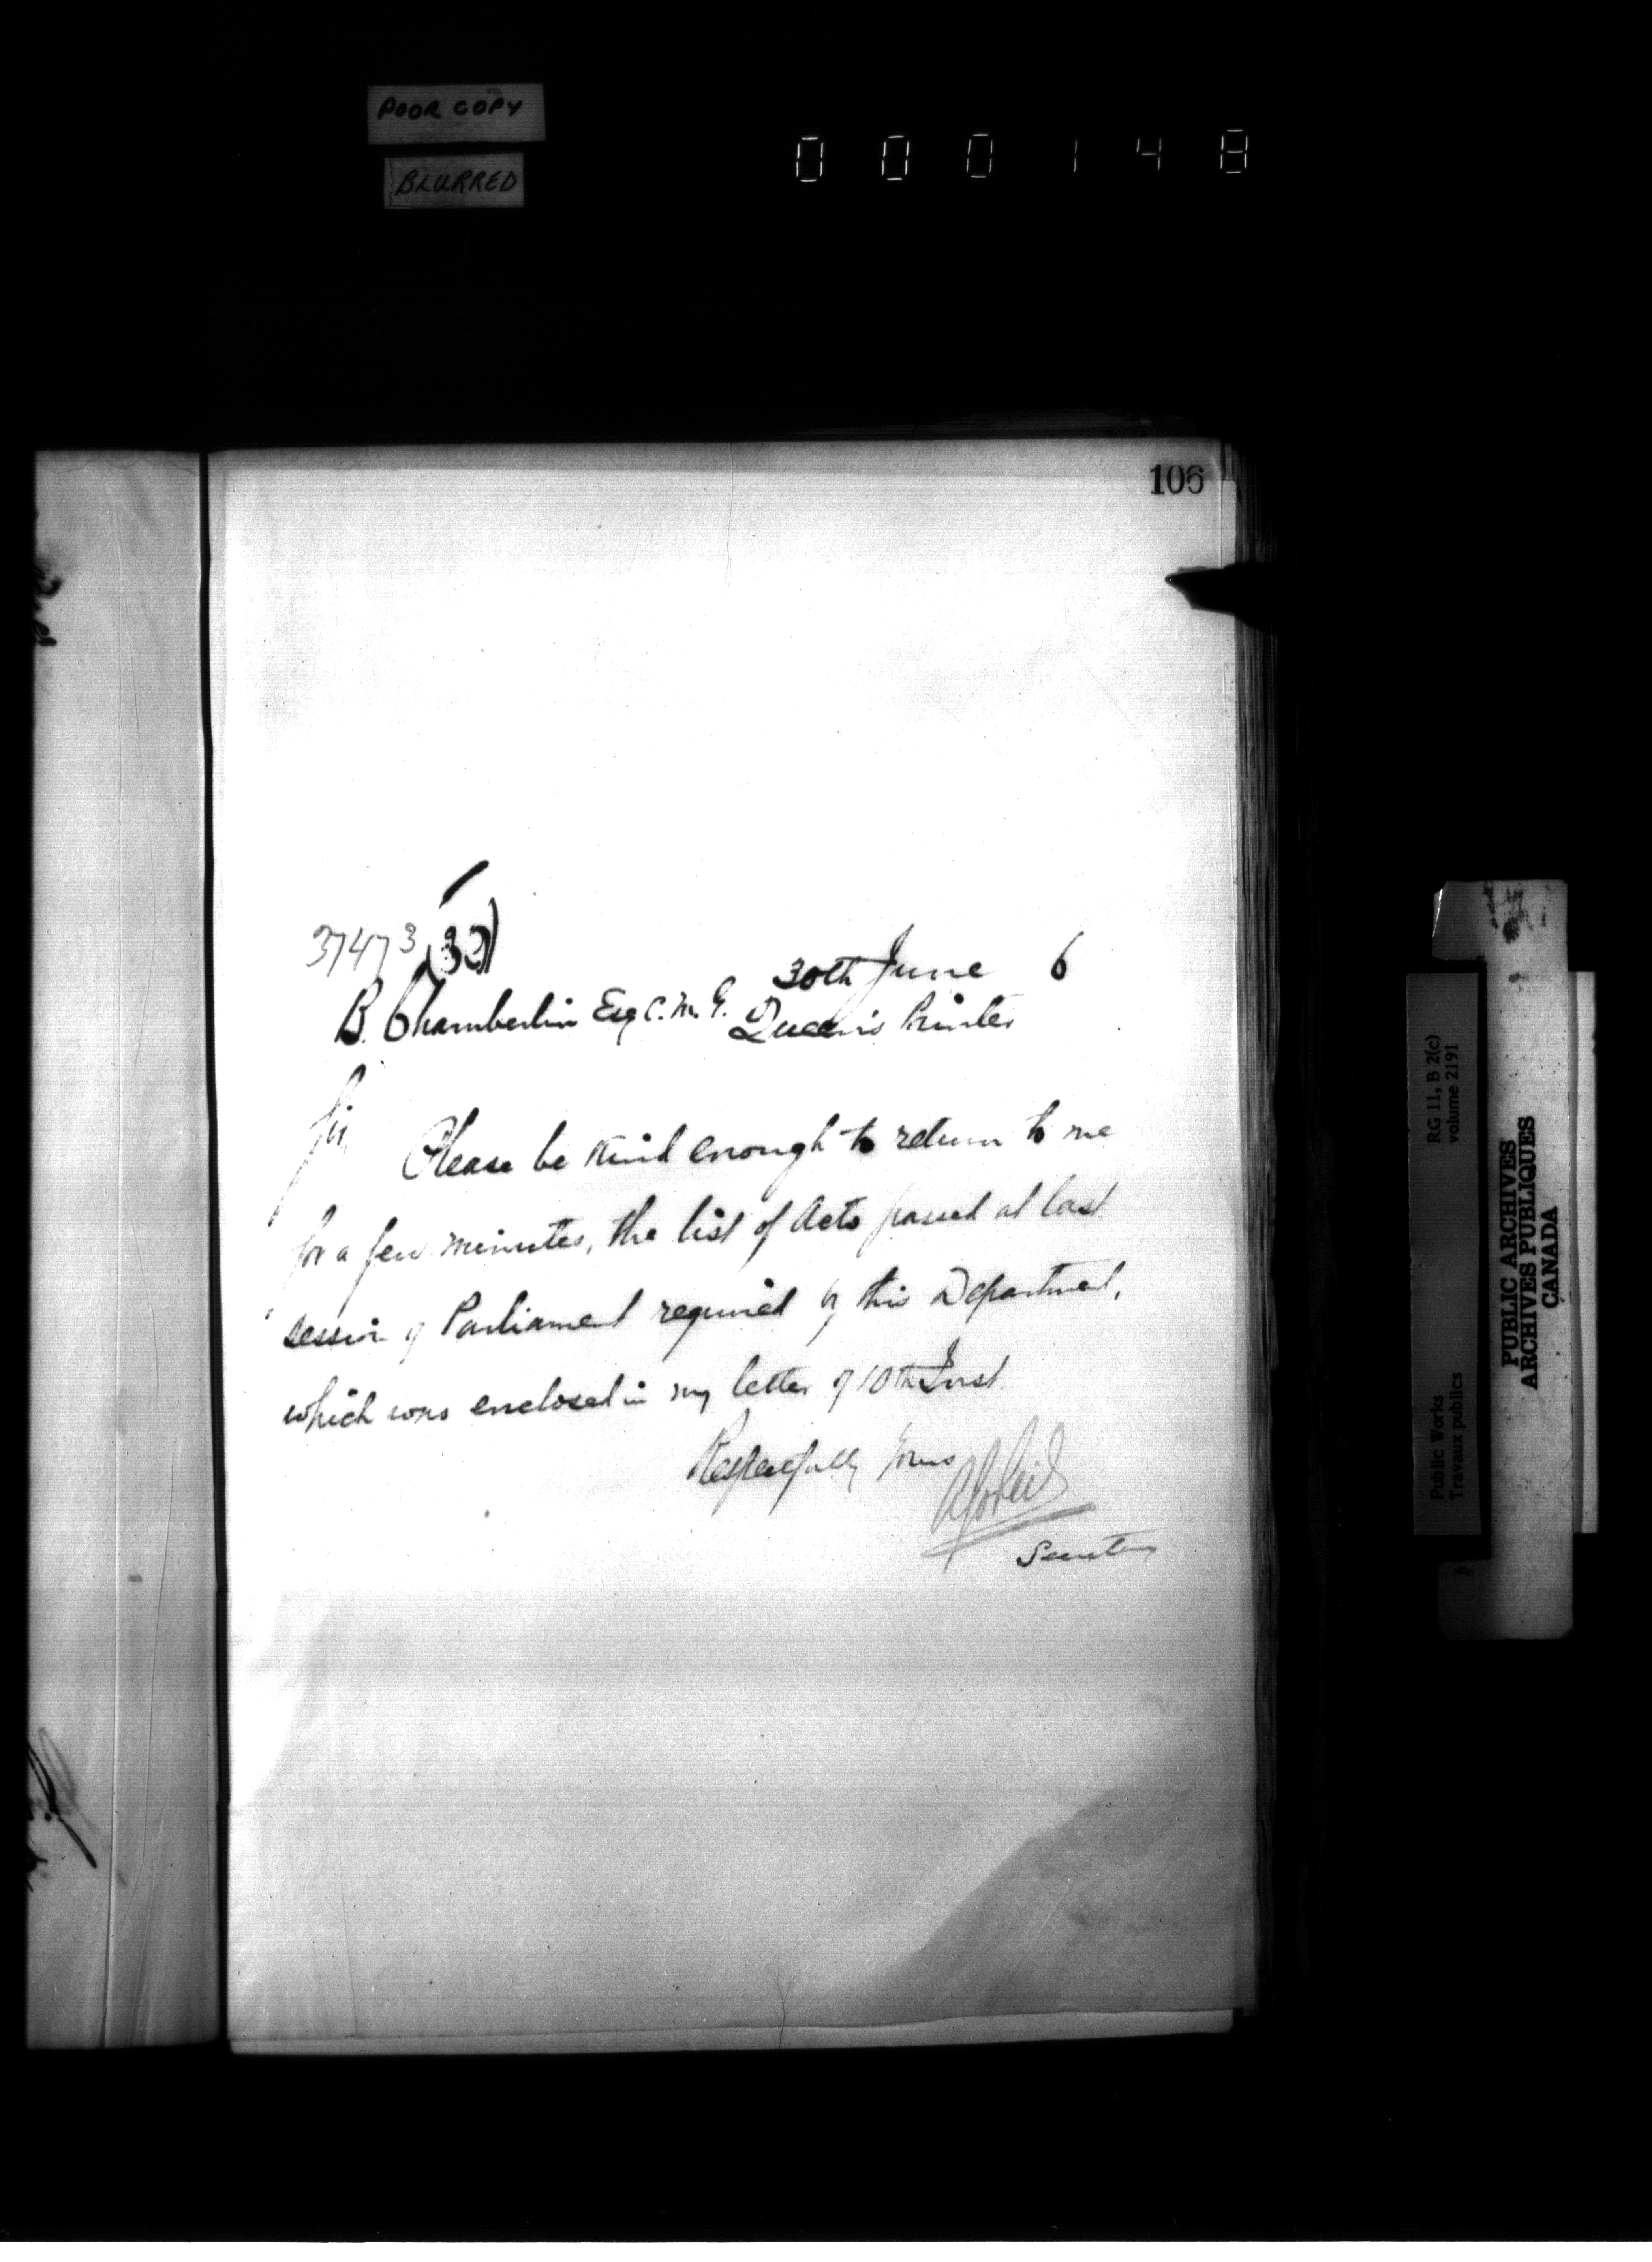 POOR COPY
BLURRED
000148
106
37473 (30)
30th June 6
B. Chamberlin Esq C.M.G. Queen's Printer
Sir,
Please be kind enough to return to me
for a few minutes, the list of Acts passed at last
session of Parliament required by this Department,
which was enclosed in my letter of 10th Inst.
Respectfully yours
Secretary
RG 11, B 2(c)
volume 2191
Public Works
Travaux publics
PUBLIC ARCHIVES
ARCHIVES PUBLIQUES
CANADA